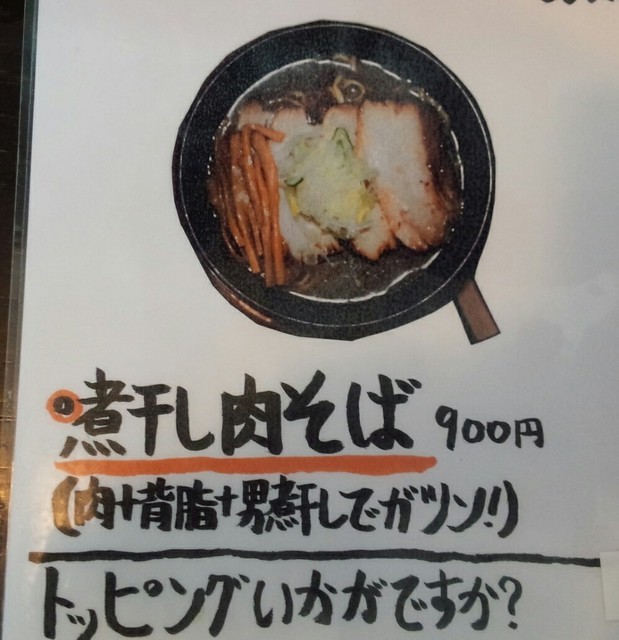 煮干し肉そば 900円
(肉+背脂+男煮干しでガツン!)
トッピングいかがですか?